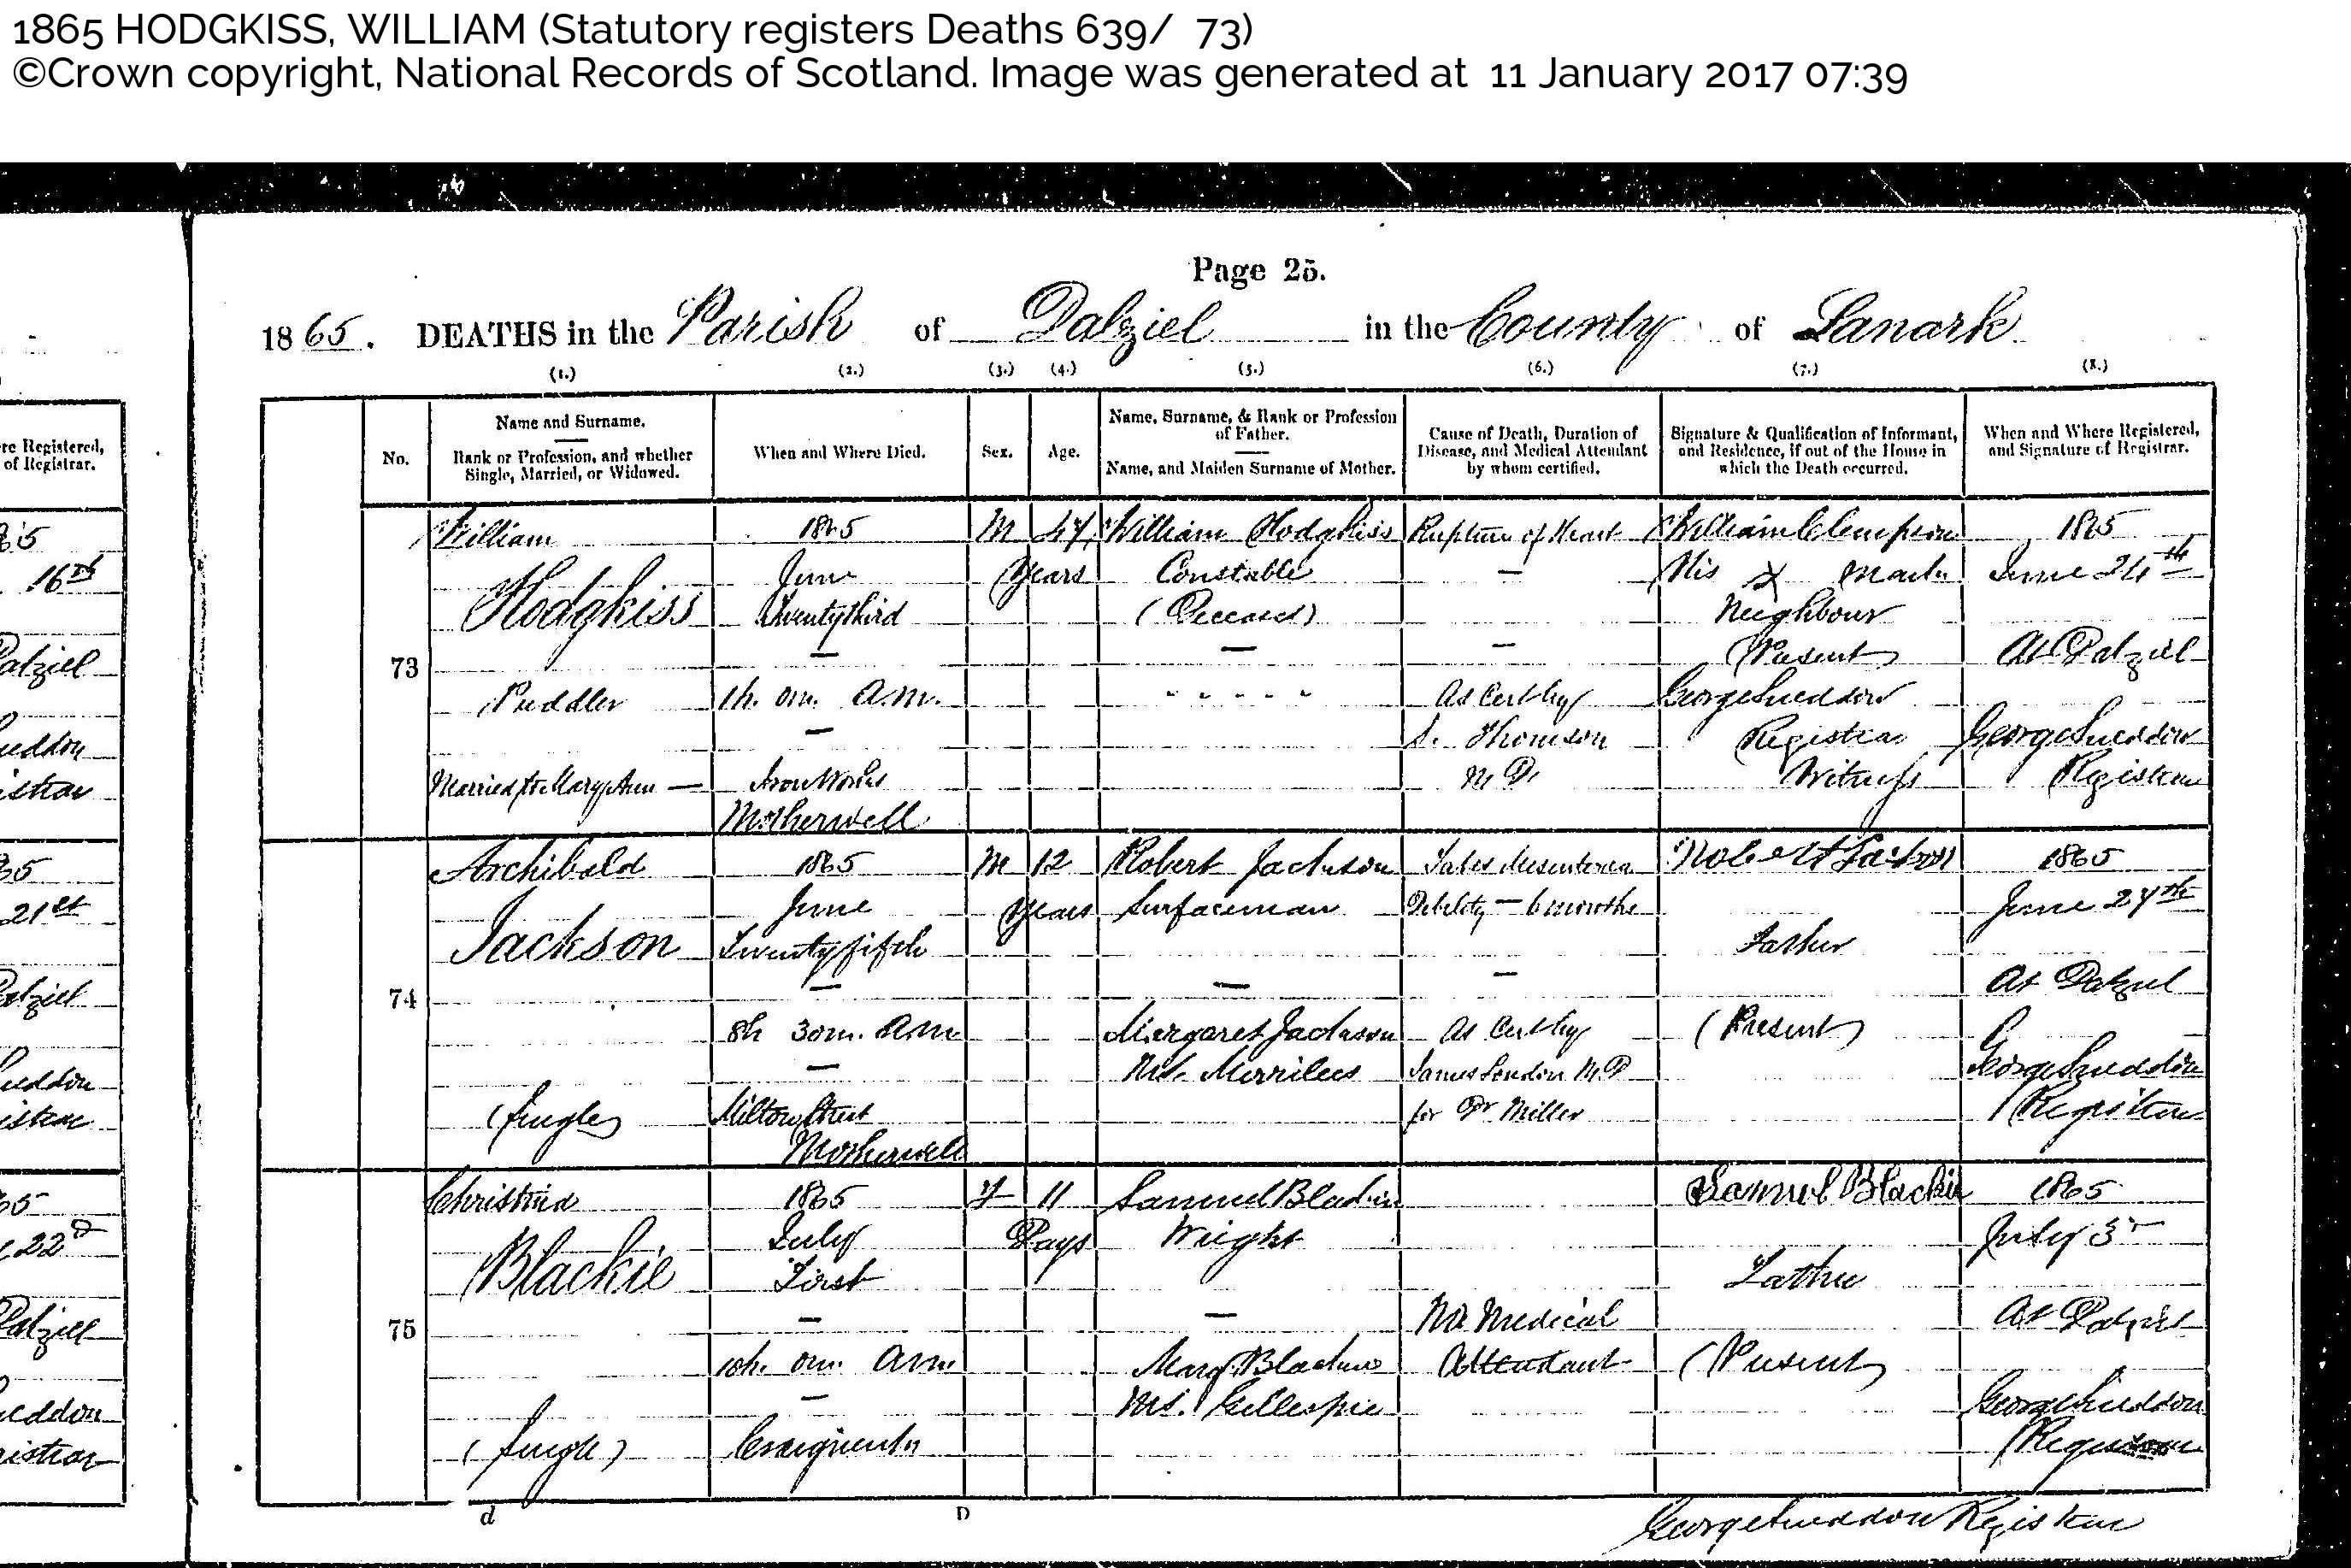 1865 HODGKISS, WILLIAM (Statutory registers Deaths 639/ 73)
©Crown copyright, National Records of Scotland. Image was generated at 11 January 2017 07:39
Page 25.
1865. DEATHS in the Parish of Dalziel in the County of Lanark
(1.) (2.) (3.) (4.) (5.) (6.) (7.) (8.)
No.
Name and Surname.
Rank or Profession, and whether
Single, Married, or Widowed.
When and Where Died.
Sex.
Age.
Name, Surname, & Rank or Profession
of Father.
Name, and Maiden Surname of Mother.
Cause of Death, Duration of
Disease, and Medical Attendant
by whom certified.
Signature & Qualification of Informant,
and Residence, if out of the House in
which the Death occurred.
When and Where Registered,
and Signature of Registrar.
re Registered,
of Registrar.
73
William
Hodgkiss
Puddler
Married to Mary Ann —
1865
June
Twenty third
—
1h. 0m. A.M.
—
Iron Works
Motherwell
M
47
Years
William Hodgkiss
Constable
(Deceased)
—
- - - - -
Rupture of Heart
—
—
As Cert by
S. Thomson
M.D.
William Clempson
His x Mark
Neighbour
(Present)
George Sneddon
Registrar
Witness
1865
June 24th
At Dalziel
George Sneddon
Registrar
74
Archibald
Jackson
(Single)
1865
June
Twenty fifth
—
8h 30m. A.M.
—
Milton Street
Motherwell
M
12
Years
Robert Jackson
Surfaceman
—
Margaret Jackson
M.S. Merrilees
Tabes Mesenterica
Debility — 6 months
—
As Cert by
James Loudon M.D
for Dr Miller
Robert Jackson
Father
(Present)
1865
June 27th
At Dalziel
George Sneddon
Registrar
75
Christina
Blackie
(Single)
1865
July
First
—
10h. 0m. A.M.
—
Craigneuk
F
11
Days
Samuel Blackie
Wright
—
Mary Blackie
M.S. Gillespie
No Medical
Attendant
Samuel Blackie
Father
(Present)
1865
July 3d
At Dalziel
George Sneddon
Registrar
d D
George Sneddon Registrar
16th
21st
22d